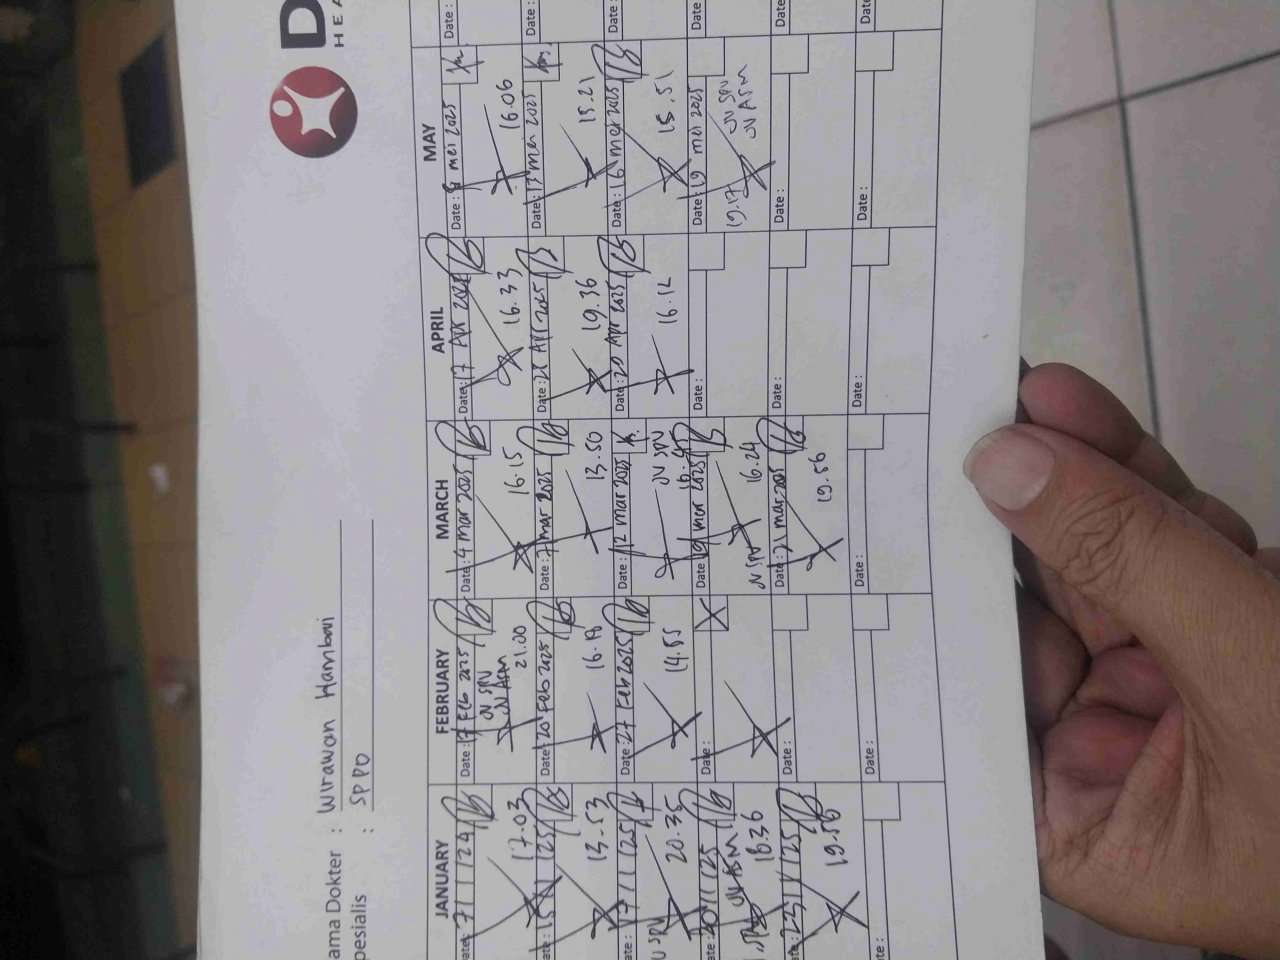 D
HEA
ama Dokter : Wirawan Hambari
pesialis : SP PD
JANUARY
ate: 7/1/24
17.03
ate: 15/1/25
13.53
ate: 17/1/25
SPV
20.35
ate: 20/1/25
JV ASM
18.36
ate: 23/1/25
19.56
ate:
FEBRUARY
Date: 17 Feb 2025
JV SPV
JV ASM
21.00
Date: 20 Feb 2025
16.18
Date: 27 Feb 2025
14.55
Date:
Date:
Date:
MARCH
Date: 4 mar 2025
16.15
Date: 7 mar 2025
13.50
Date: 12 mar 2025
JV SPV
Date: 19 mar 2025
16.24
JV SPV
Date: 21 mar 2025
19.56
Date:
APRIL
Date: 17 Apr 2025
16.33
Date: 28 Apr 2025
19.36
Date: 20 Apr 2025
16.12
Date:
Date:
Date:
MAY
Date: mei 2025
16.06
Date: 13 mei 2025
15.21
Date: 16 mei 2025
15.51
Date: 19 mei 2025
JV SPV
JV ASM
19.17
Date:
Date:
Date:
Date:
Date:
Date:
Date:
Dat